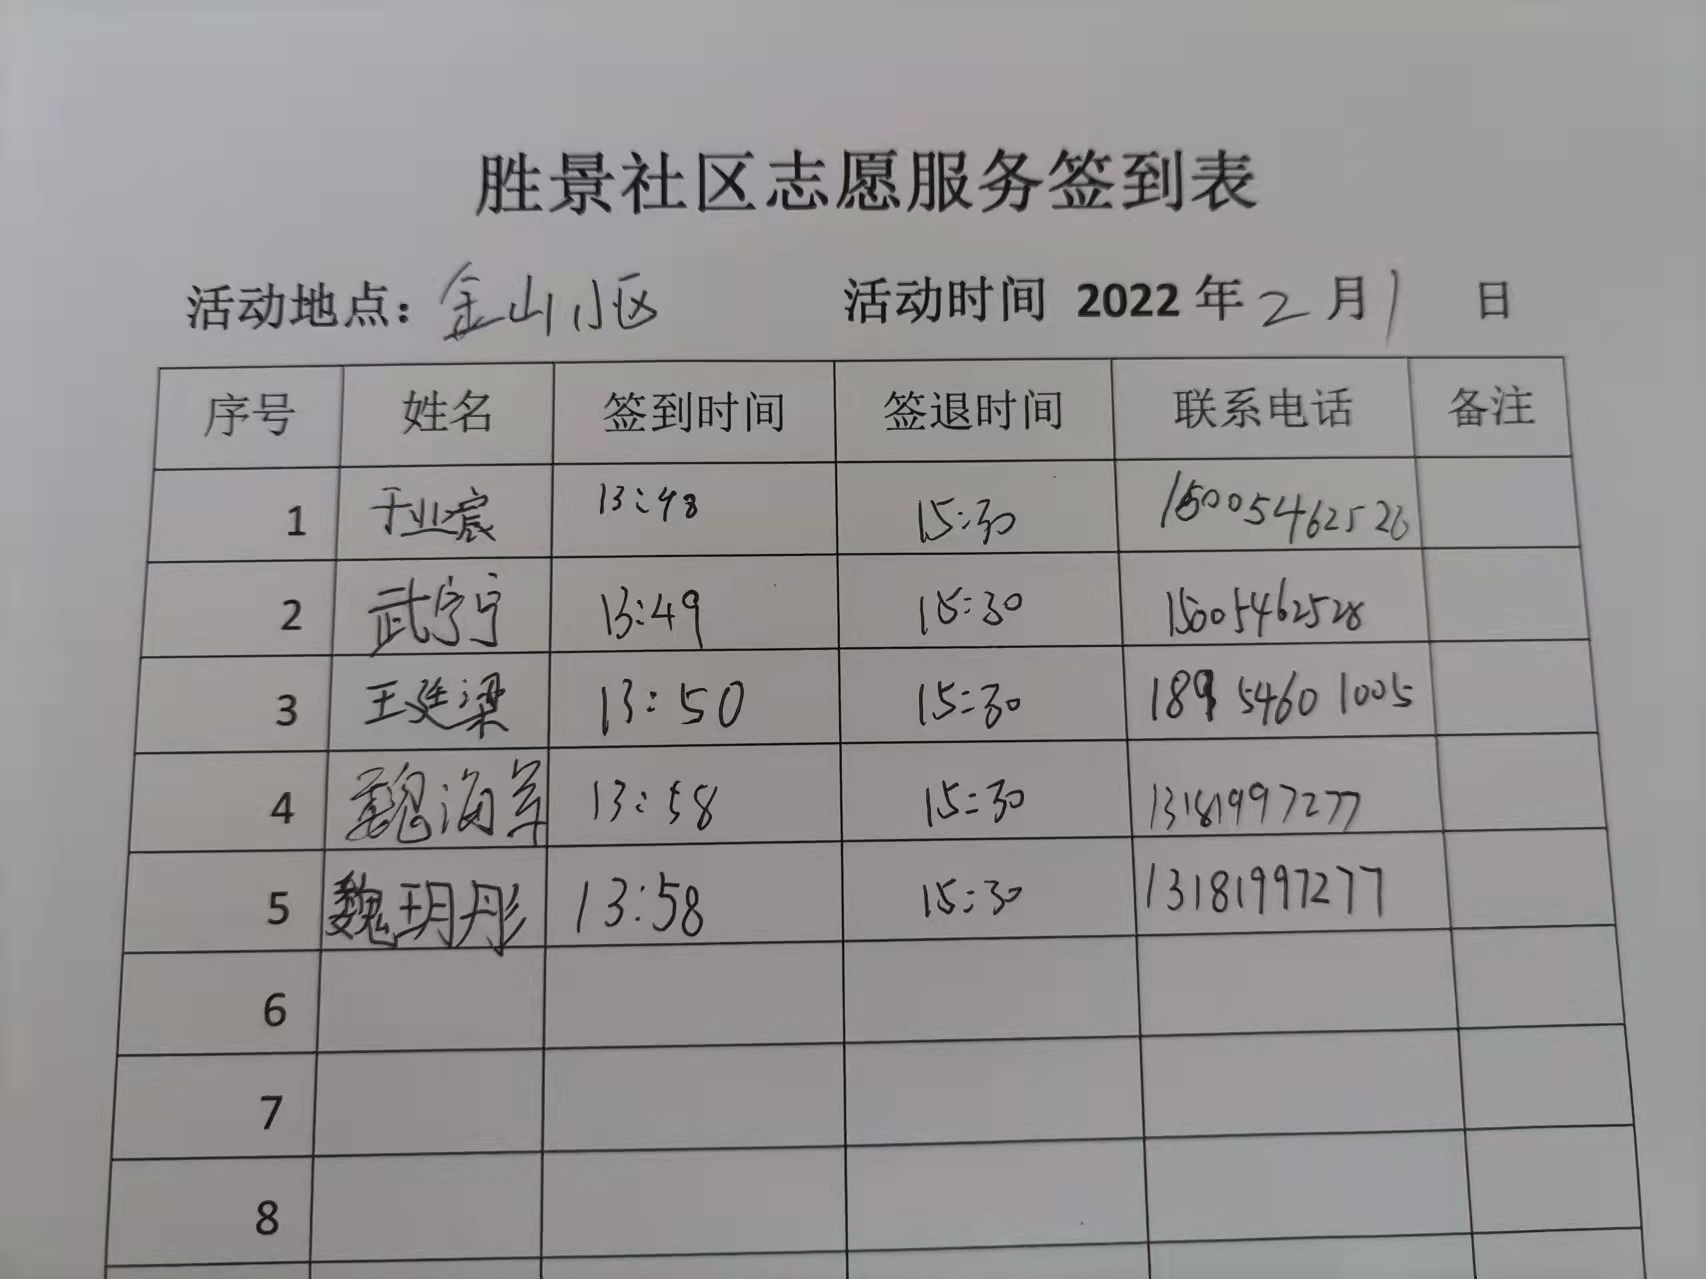 胜景社区志愿服务签到表
活动地点：金山小区 活动时间 2022 年 2 月 1 日
序号 姓名 签到时间 签退时间 联系电话 备注
1 于业宸 13:48 15:30 15005462526
2 武宁宁 13:49 15:30 15005462528
3 王廷梁 13:50 15:30 189 5460 1005
4 魏海军 13:58 15:30 13181997277
5 魏玥彤 13:58 15:30 13181997277
6
7
8